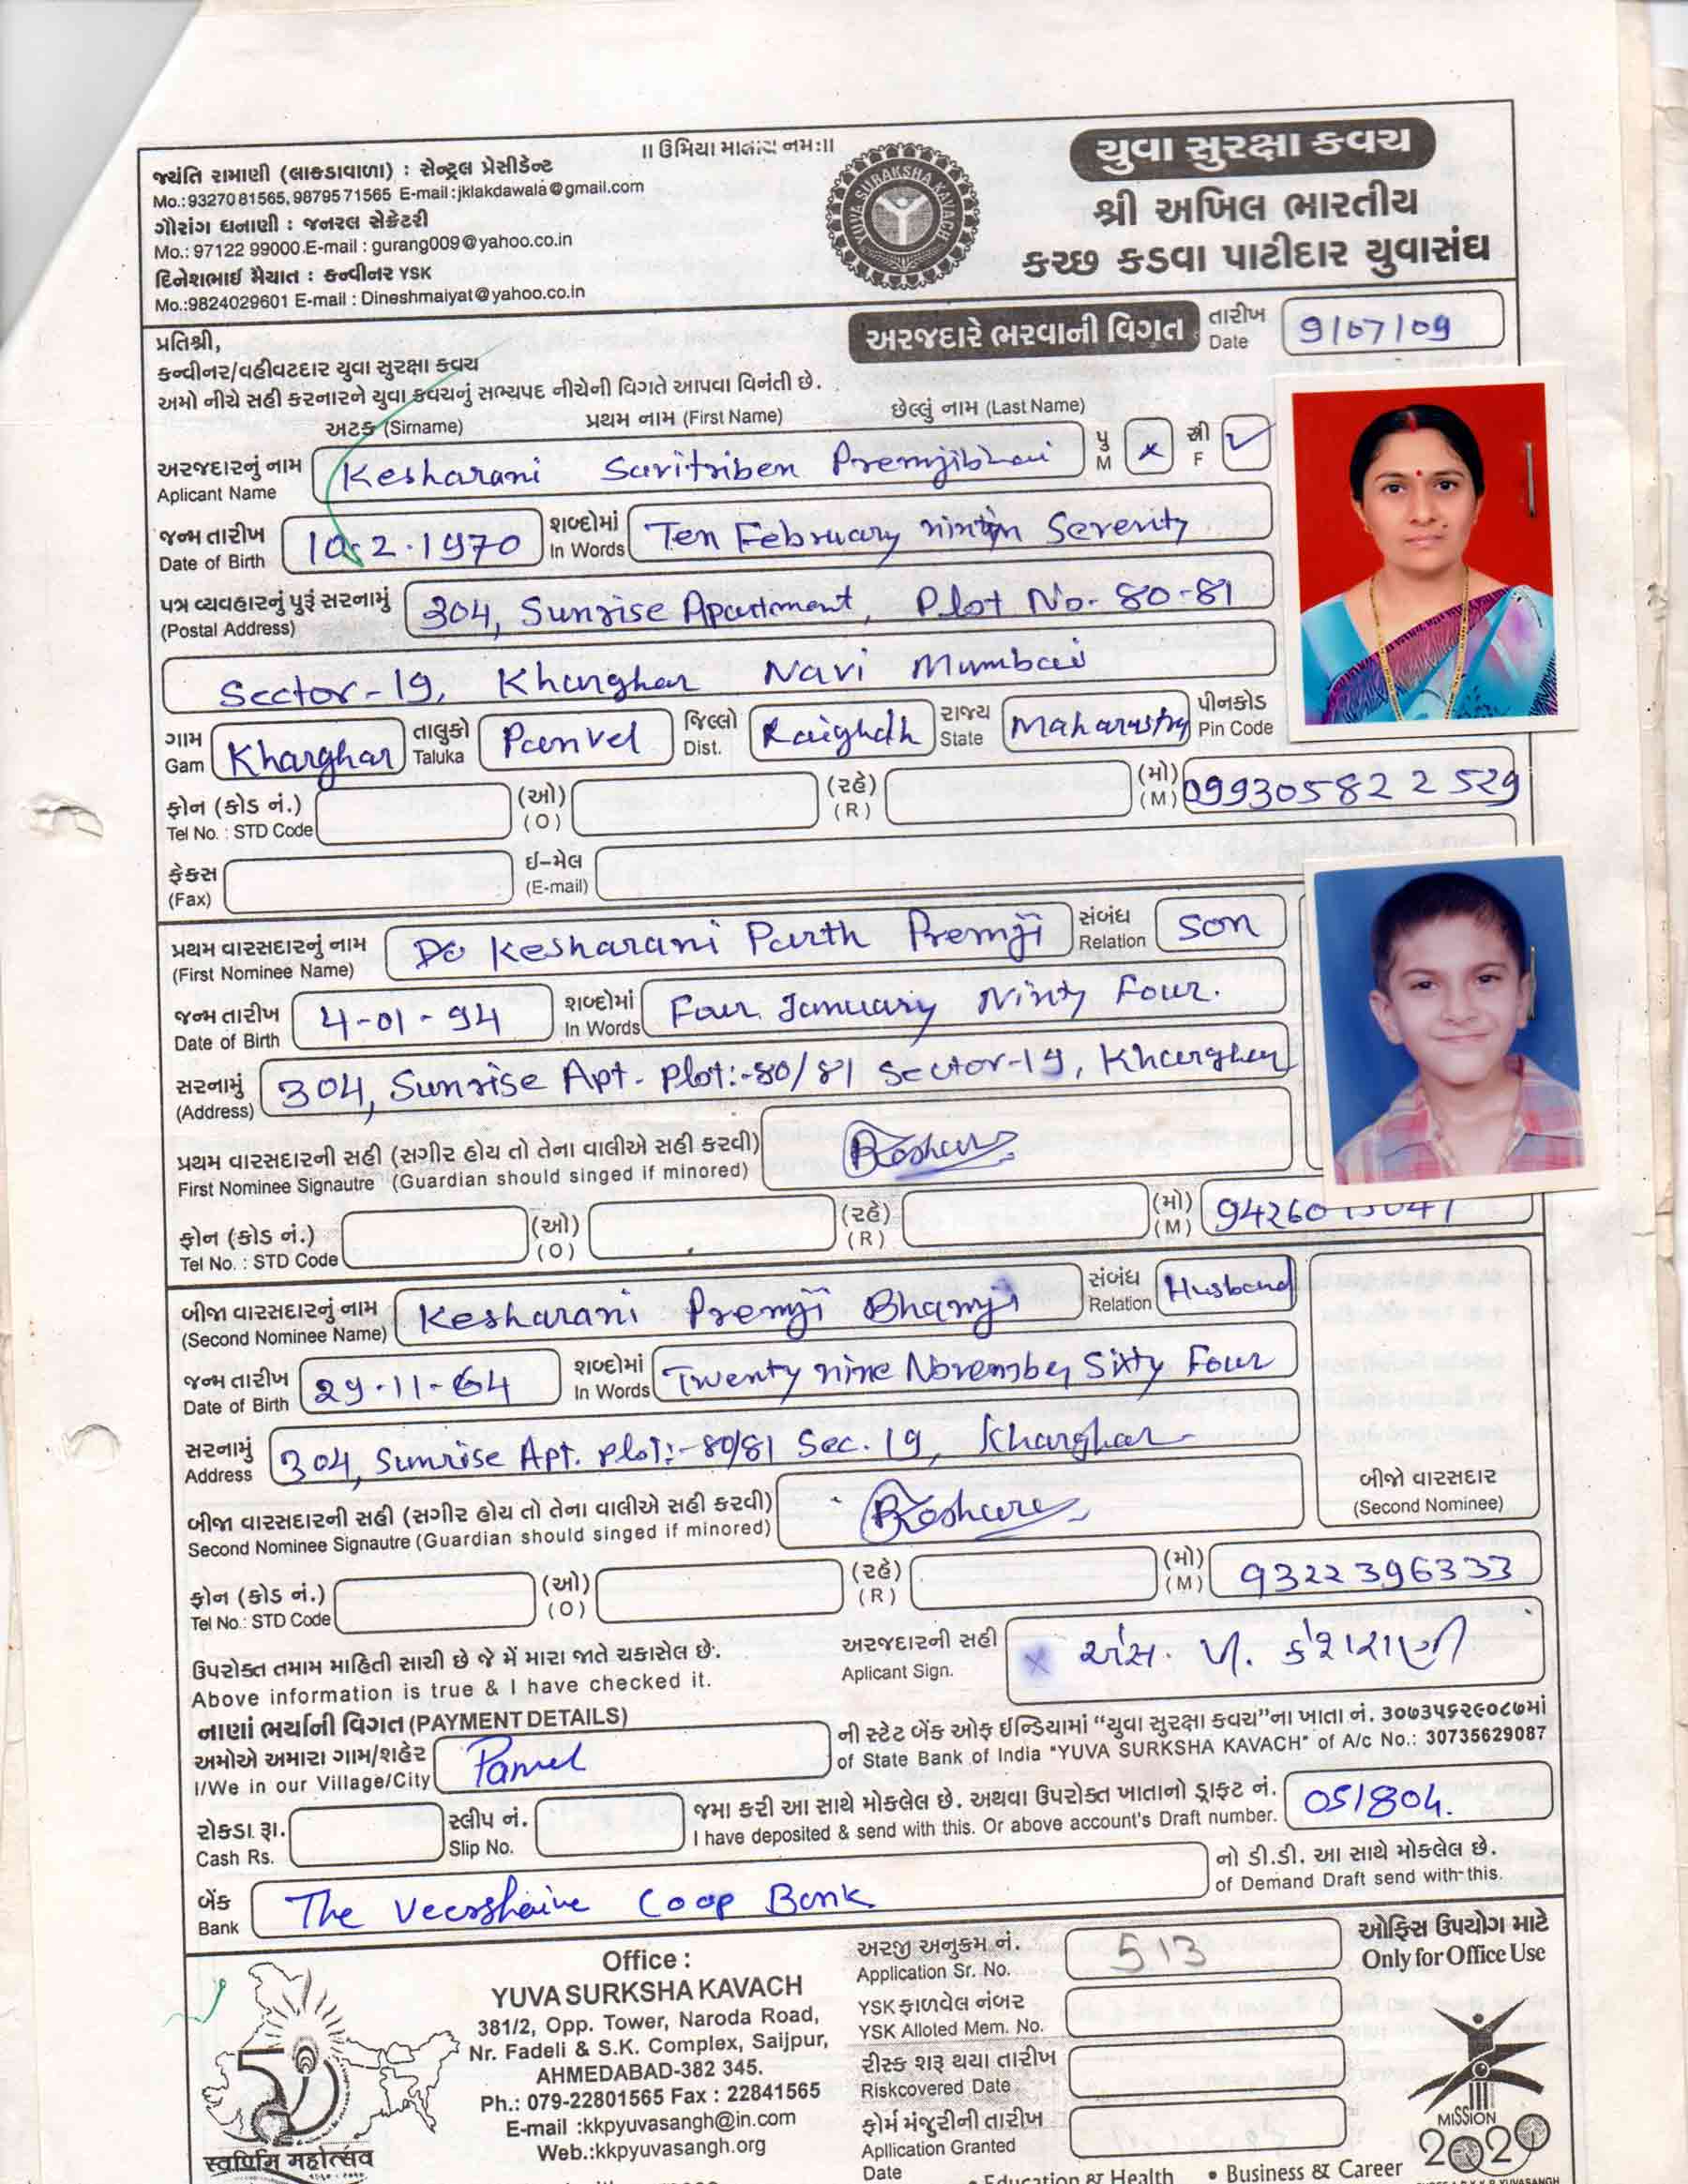 ॥ ઉમિયા માતાય નમઃ॥
જ્યંતિ રામાણી (લાકડાવાળા) : સેન્ટ્રલ પ્રેસીડેન્ટ
Mo.:93270 81565, 98795 71565 E-mail :jklakdawala@gmail.com
ગૌરાંગ ધનાણી : જનરલ સેક્રેટરી
Mo.: 97122 99000 E-mail : gurang009@yahoo.co.in
દિનેશભાઈ મૈયાત : કન્વીનર YSK
Mo.:9824029601 E-mail : Dineshmaiyat@yahoo.co.in
YUVA SURAKSHA KAVACH
યુવા સુરક્ષા કવચ
શ્રી અખિલ ભારતીય
કચ્છ કડવા પાટીદાર યુવાસંઘ
અરજદારે ભરવાની વિગત તારીખ Date 9/07/09
પ્રતિશ્રી,
કન્વીનર/વહીવટદાર યુવા સુરક્ષા કવચ
અમો નીચે સહી કરનારને યુવા કવચનું સભ્યપદ નીચેની વિગતે આપવા વિનંતી છે.
અટક (Sirname) પ્રથમ નામ (First Name) છેલ્લું નામ (Last Name)
અરજદારનું નામ Aplicant Name Kesharani Savitriben Premjibhai પુ M x સ્ત્રી F ✓
જન્મ તારીખ Date of Birth 10.2.1970 શબ્દોમાં In Words Ten February Seventy
પત્ર વ્યવહારનું પુરૂં સરનામું (Postal Address) 304, Sunrise Apartment, Plot No- 80-81
Sector-19, Kharghar Navi Mumbai
ગામ Gam Kharghar તાલુકો Taluka Panvel જિલ્લો Dist. Raighdh રાજ્ય State Maharastra પીનકોડ Pin Code
ફોન (કોડ નં.) Tel No. : STD Code (ઓ) (O) (રહે) (R) (મો) (M) 0993058 2 2 529
ફેકસ (Fax) ઈ-મેલ (E-mail)
પ્રથમ વારસદારનું નામ (First Nominee Name) Kesharani Parth Premji સંબંધ Relation Son
જન્મ તારીખ Date of Birth 4-01-94 શબ્દોમાં In Words Four January Ninty Four.
સરનામું (Address) 304, Sunrise Apt. Plot:-80/81 Sector-19, Kharghar
પ્રથમ વારસદારની સહી (સગીર હોય તો તેના વાલીએ સહી કરવી)
First Nominee Signautre (Guardian should singed if minored)
ફોન (કોડ નં.) Tel No. : STD Code (ઓ) (O) (રહે) (R) (મો) (M) 94260
બીજા વારસદારનું નામ (Second Nominee Name) Kesharani Premji Bhamji સંબંધ Relation Husband
જન્મ તારીખ Date of Birth 29-11-64 શબ્દોમાં In Words Twenty nine November Sixty Four
સરનામું Address 304, Sunrise Apt. Plot:-80/81 Sec. 19, Kharghar
બીજો વારસદાર
(Second Nominee)
બીજા વારસદારની સહી (સગીર હોય તો તેના વાલીએ સહી કરવી)
Second Nominee Signautre (Guardian should singed if minored)
ફોન (કોડ નં.) Tel No.: STD Code (ઓ) (O) (રહે) (R) (મો) (M) 9322396333
ઉપરોક્ત તમામ માહિતી સાચી છે જે મેં મારા જાતે ચકાસેલ છે. અરજદારની સહી x એસ. પી. કેશરાણી
Above information is true & I have checked it. Aplicant Sign.
નાણાં ભર્યાની વિગત (PAYMENT DETAILS)
અમોએ અમારા ગામ/શહેર Panvel ની સ્ટેટ બેંક ઓફ ઈન્ડિયામાં "યુવા સુરક્ષા કવચ"ના ખાતા નં. ૩૦૭૩૫૬૨૯૦૮૭માં
I/We in our Village/City of State Bank of India "YUVA SURKSHA KAVACH" of A/c No.: 30735629087
રોકડા રૂા. સ્લીપ નં. જમા કરી આ સાથે મોકલેલ છે. અથવા ઉપરોક્ત ખાતાનો ડ્રાફ્ટ નં. 051804.
Cash Rs. Slip No. I have deposited & send with this. Or above account's Draft number.
બેંક Bank The Veershaive Coop Bank નો ડી.ડી. આ સાથે મોકલેલ છે.
of Demand Draft send with-this.
Office :
YUVA SURKSHA KAVACH
381/2, Opp. Tower, Naroda Road,
Nr. Fadeli & S.K. Complex, Saijpur,
AHMEDABAD-382 345.
Ph.: 079-22801565 Fax : 22841565
E-mail :kkpyuvasangh@in.com
Web.:kkpyuvasangh.org
અરજી અનુક્રમ નં. 513
Application Sr. No.
YSK ફાળવેલ નંબર
YSK Alloted Mem. No.
રીસ્ક શરૂ થયા તારીખ
Riskcovered Date
ફોર્મ મંજુરીની તારીખ
Apllication Granted
Date
ઓફિસ ઉપયોગ માટે
Only for Office Use
50
स्वर्णिम महोत्सव
MISSION
2020
• Education & Health • Business & Career